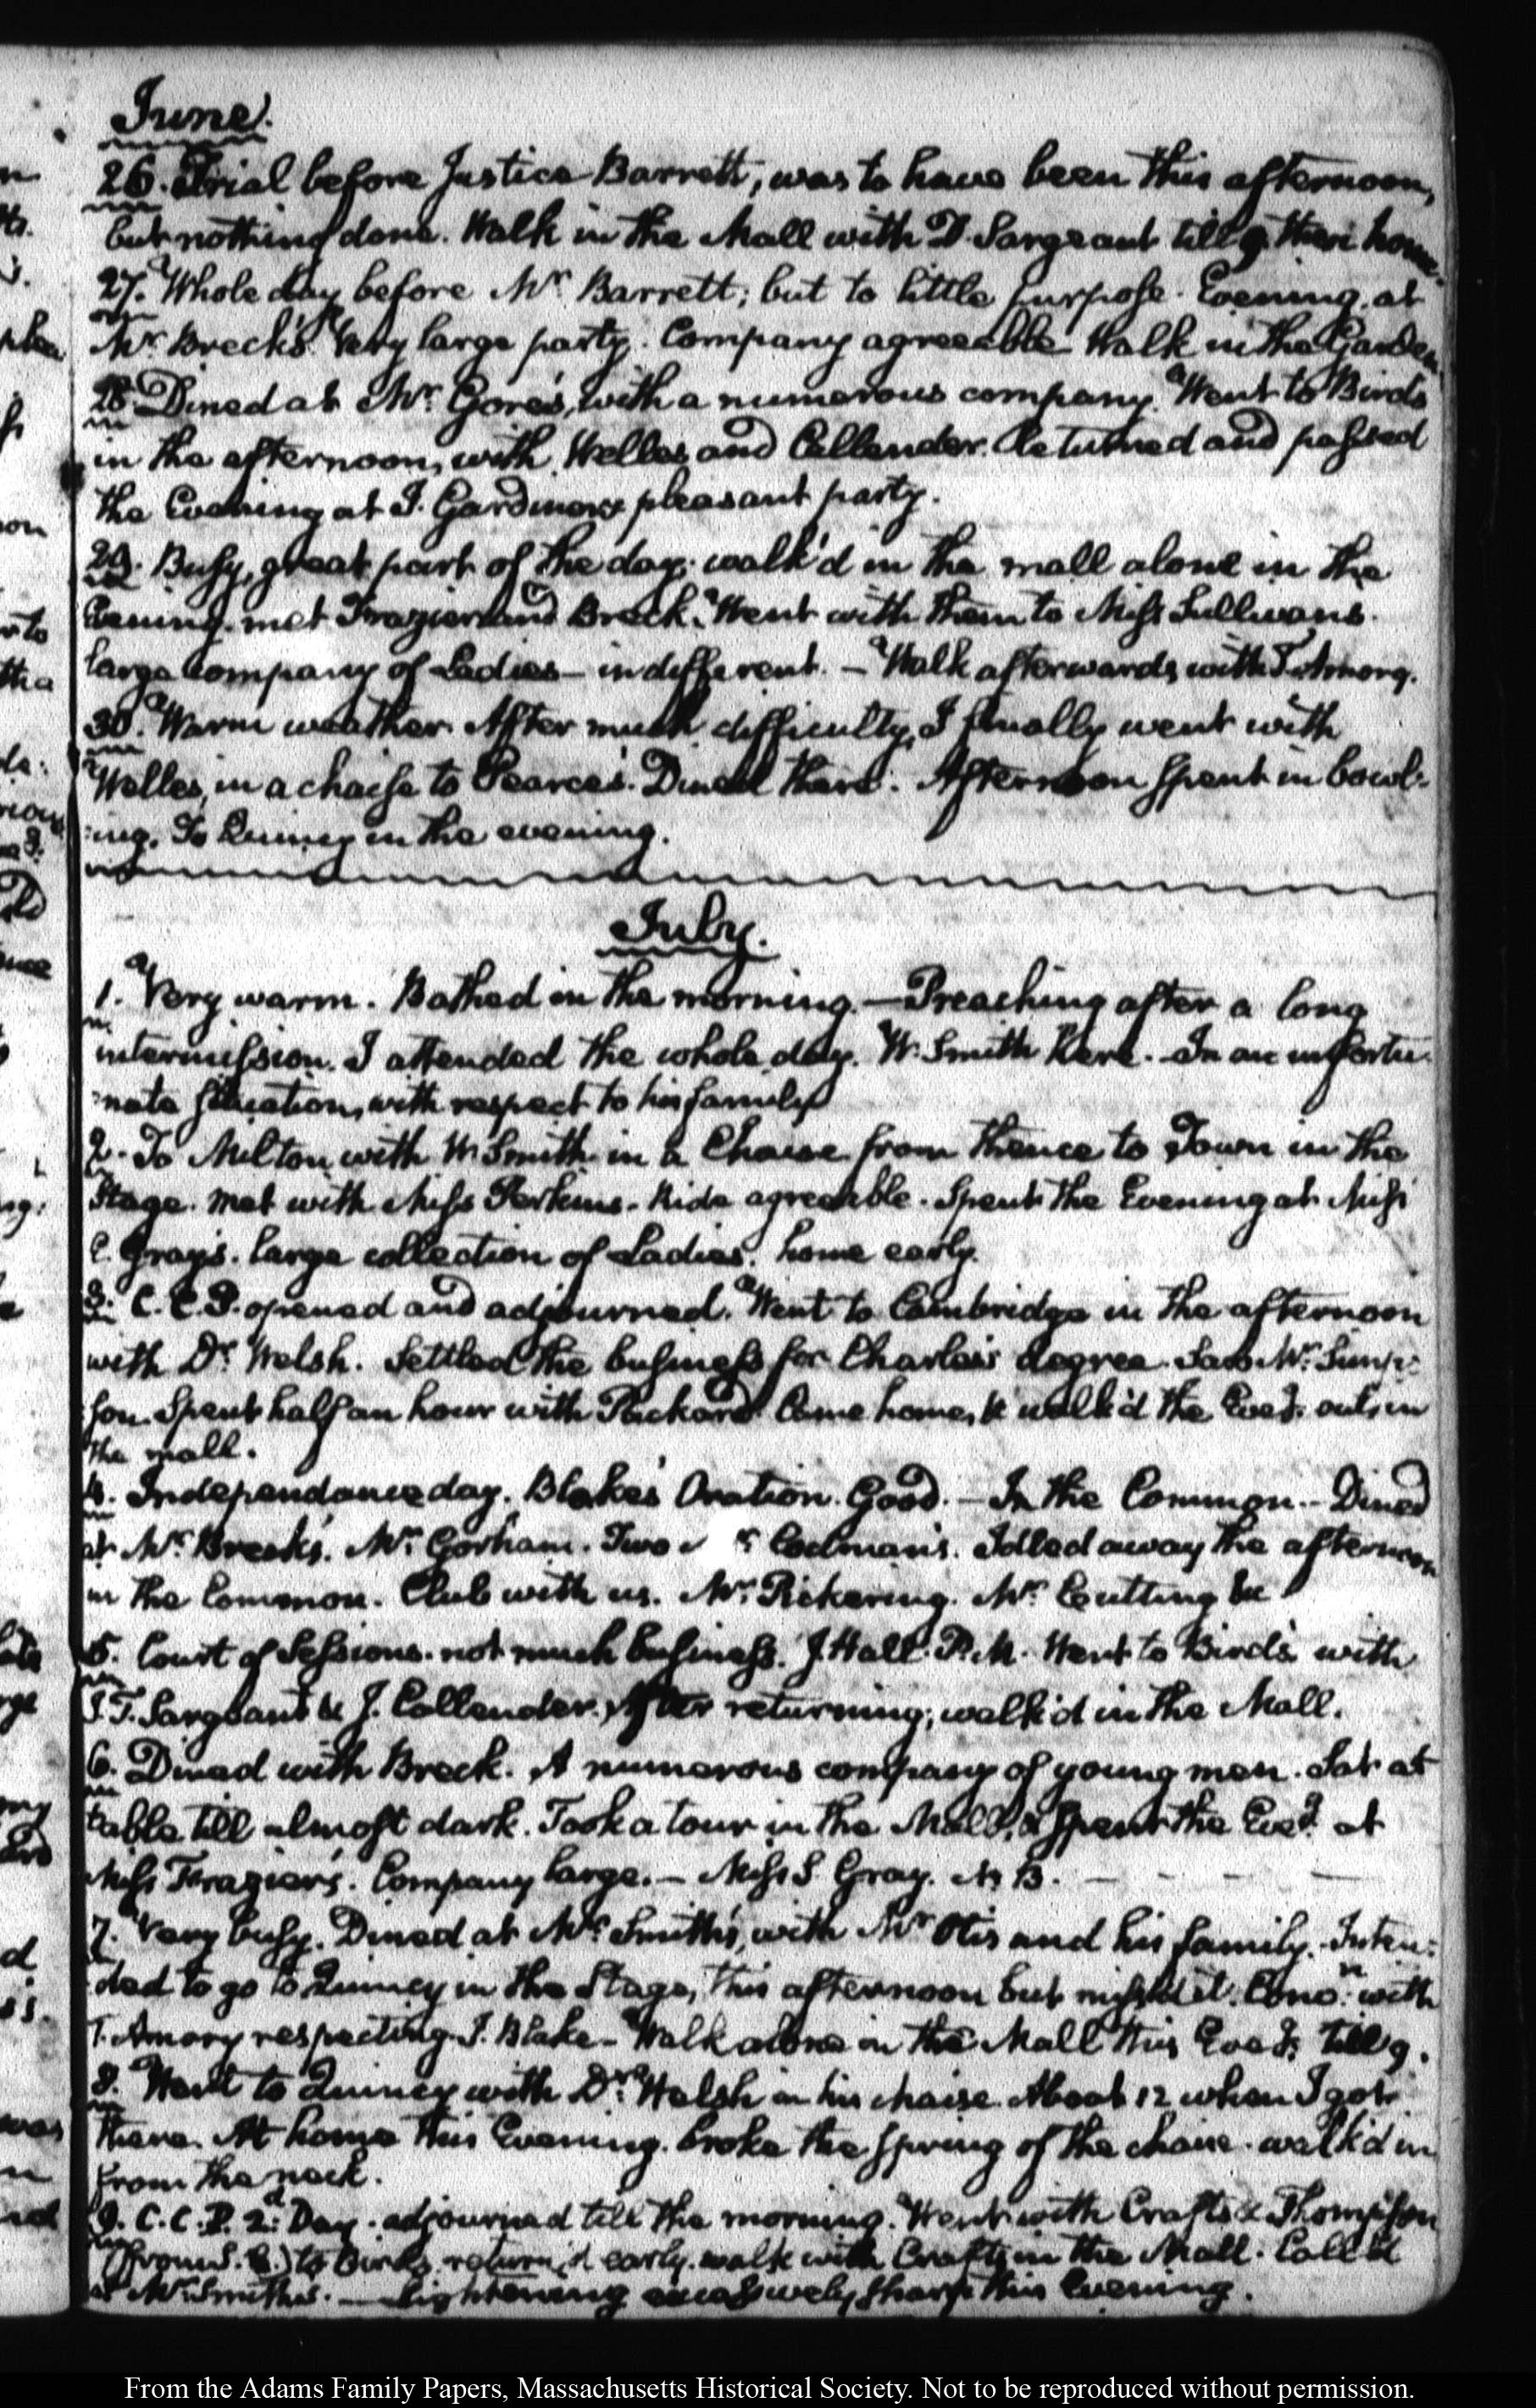 June.
26. Trial before Justice Barrett, was to have been this afternoon,
but nothing done. Walk in the Mall with D. Sargeant till 9. then home.
27. Whole day before Mr. Barrett; but to little purpose. Evening, at
Mr. Breck's. Very large party. Company agreeable. Walk in the Garden.
28. Dined at Mr. Gore's, with a numerous company. Went to Birds
in the afternoon, with Welles and Callender. Returned and passed
the Evening at J. Gardiner's pleasant party.
29. Busy, great part of the day; walk'd in the mall alone in the
Evening. met Frazier and Breck. Went with them to Miss Sullivans.
large company of Ladies — indifferent. — Walk afterwards with T. Amory.
30. Warm weather. After much difficulty, I finally went with
Welles, in a chaise to Pearce's. Dined there. Afternoon spent in bowl-
:ing. To Quincy in the evening.
July.
1. Very warm. Bathed in the morning. — Preaching after a long
intermission. I attended the whole day. W. Smith here. In an unfortu-
:nate situation, with respect to his family
2. To Milton with W. Smith in a Chaise from thence to Town in the
Stage. met with Miss Perkins. Ride agreeable. Spent the Evening at Miss
C. Gray's. large collection of Ladies. home early.
3. C. C. P. opened and adjourned. Went to Cambridge in the afternoon
with Dr. Welsh. Settled the business for Charles's degree. Saw Mr. Simp-
:son. Spent half an hour with Packard. Came home, & walk'd the Eveg. out, in
the mall.
4. Independance day. Blake's Oration. Good. — In the Common. — Dined
at Mr. Breck's. Mr. Gorham. Two r Codman's. Idled away the afternoon
in the Common. Club with us. Mr. Pickering. Mr. Cutting &c
5. Court of Sessions. not much business. J. Hall. P. M. Went to Bird's with
J. T. Sargeant & J. Callender. After returning, walk'd in the Mall.
6. Dined with Breck. A numerous company of young men. Sat at
table till almost dark. Took a tour in the Mall, & spent the Eveg. at
Miss Frazier's. Company large. — Miss S. Gray. N. B. — — — —
7. Very busy. Dined at Mr. Smith's, with Mr Otis and his family. Inten-
ded to go to Quincy in the Stage, this afternoon but miss'd it. Conv.n with
T. Amory respecting J. Blake — Walk alone in the Mall this Eveg. till 9.
8. Went to Quincy with Dr. Welsh in his chaise. About 12 when I got
there. At home this Evening. broke the spring of the chaise. walk'd in
from the neck.
9. C. C. P. 2d. Day. adjourned till the morning. Went with Crafts & Thompson
(from S. C.) to Birds, return'd early. walk with Crafts in the Mall. Call'd
at Mr. Smith's. — lightening excessively sharp this Evening.
From the Adams Family Papers, Massachusetts Historical Society. Not to be reproduced without permission.